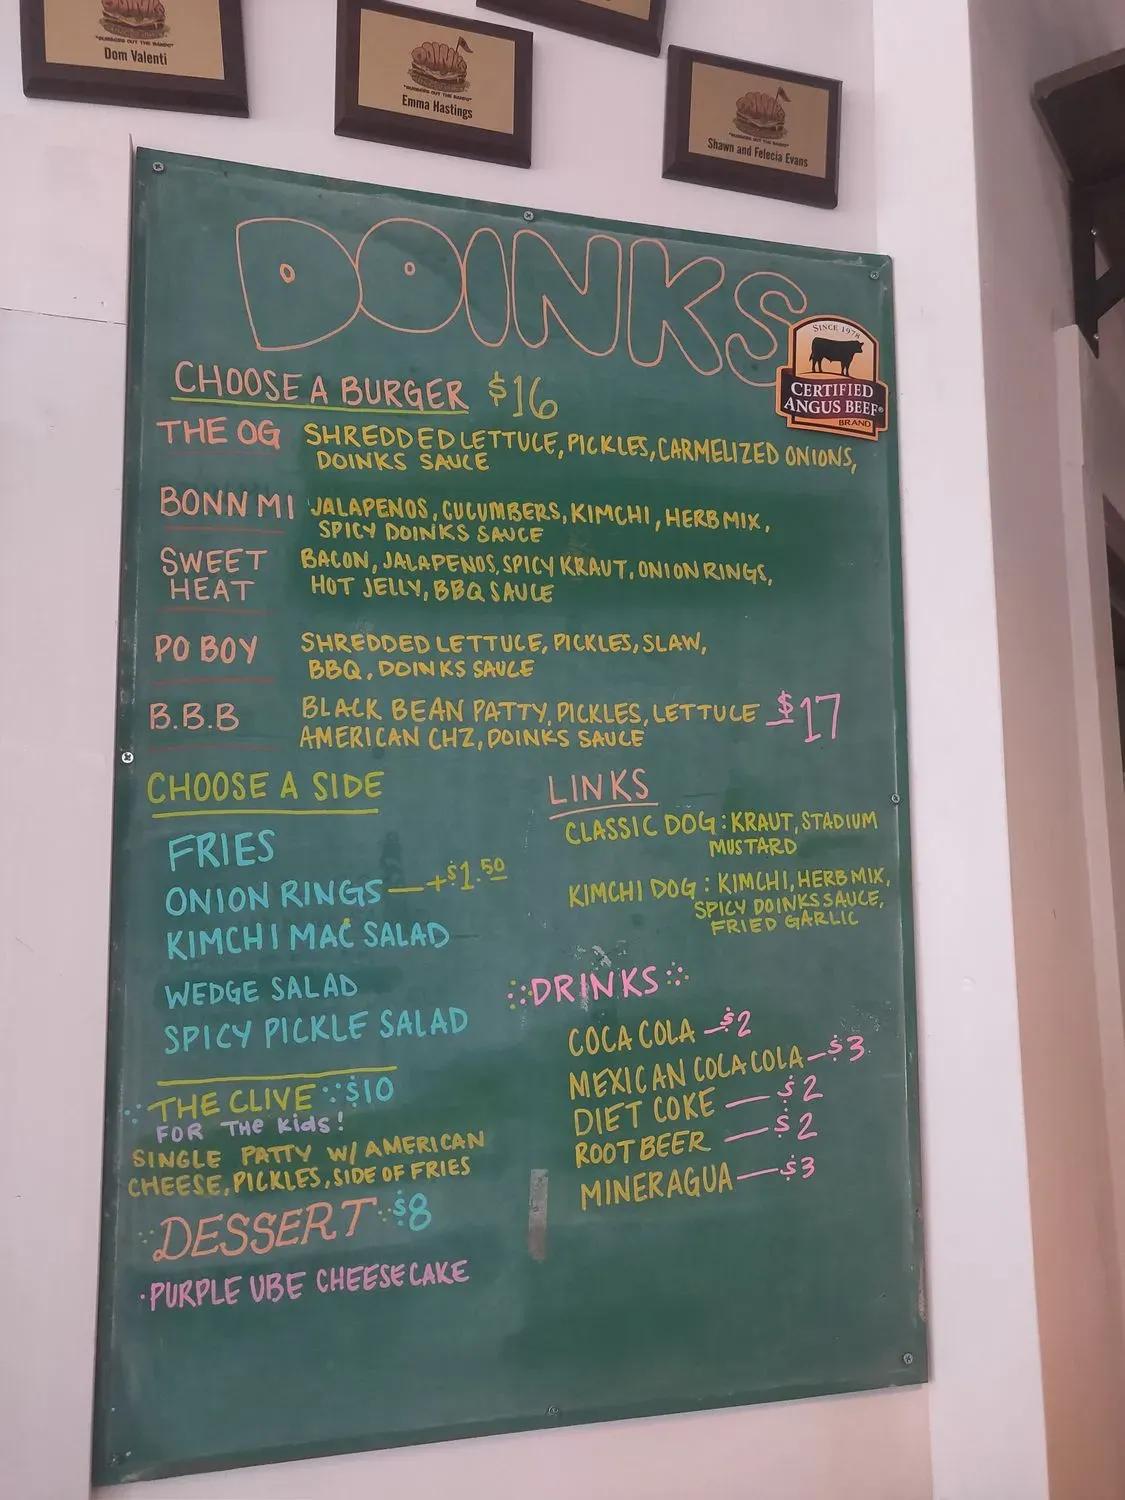 "BURGERS OUT THE BANDO"
Dom Valenti
DOINKS
"BURGERS OUT THE BANDO"
Emma Hastings
DOINKS
"BURGERS OUT THE BANDO"
Shawn and Felecia Evans
DOINKS
SINCE 1978
CERTIFIED
ANGUS BEEF®
BRAND
CHOOSE A BURGER $16
THE OG SHREDDED LETTUCE, PICKLES, CARMELIZED ONIONS,
DOINKS SAUCE
BONN MI JALAPENOS, CUCUMBERS, KIMCHI, HERB MIX,
SPICY DOINKS SAUCE
SWEET HEAT BACON, JALAPENOS, SPICY KRAUT, ONION RINGS,
HOT JELLY, BBQ SAUCE
PO BOY SHREDDED LETTUCE, PICKLES, SLAW,
BBQ, DOINKS SAUCE
B.B.B BLACK BEAN PATTY, PICKLES, LETTUCE $17
AMERICAN CHZ, DOINKS SAUCE
CHOOSE A SIDE
FRIES
ONION RINGS — +$1.50
KIMCHI MAC SALAD
WEDGE SALAD
SPICY PICKLE SALAD
THE CLIVE $10
FOR THE KIDS!
SINGLE PATTY W/ AMERICAN
CHEESE, PICKLES, SIDE OF FRIES
DESSERT $8
·PURPLE UBE CHEESECAKE
LINKS
CLASSIC DOG: KRAUT, STADIUM
MUSTARD
KIMCHI DOG: KIMCHI, HERB MIX,
SPICY DOINKS SAUCE,
FRIED GARLIC
DRINKS
COCA COLA — $2
MEXICAN COLA COLA — $3
DIET COKE — $2
ROOT BEER — $2
MINERAGUA — $3